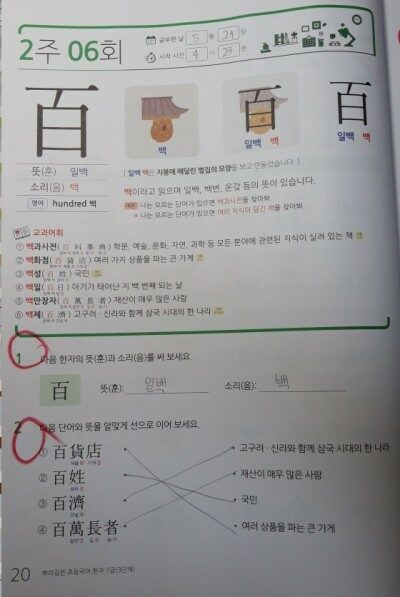 2주 06회
공부한 날 5월 29일
시작 시간 4시 23분
百
뜻(훈) 일백
소리(음) 백
영어 hundred 백
백
百
일백 백
百
일백 백
[ 일백 백은 지붕에 매달린 벌집의 모양을 보고 만들었습니다. ]
백이라고 읽으며 일백, 백번, 온갖 등의 뜻이 있습니다.
나는 모르는 단어가 있으면 백과사전을 찾아봐.
= 나는 모르는 단어가 있으면 여러 지식이 담긴 책을 찾아봐.
교과어휘
① 백과사전(百科事典) 학문, 예술, 문화, 자연, 과학 등 모든 분야에 관련된 지식이 실려 있는 책
② 백화점(百貨店) 여러 가지 상품을 파는 큰 가게
③ 백성(百姓) 국민
④ 백일(百日) 아기가 태어난 지 백 번째 되는 날
⑤ 백만장자(百萬長者) 재산이 매우 많은 사람
⑥ 백제(百濟) 고구려·신라와 함께 삼국 시대의 한 나라
1 다음 한자의 뜻(훈)과 소리(음)를 써 보세요.
百 뜻(훈): 일백 소리(음): 백
2 다음 단어와 뜻을 알맞게 선으로 이어 보세요.
① 百貨店 고구려·신라와 함께 삼국 시대의 한 나라
② 百姓 재산이 매우 많은 사람
③ 百濟 국민
④ 百萬長者 여러 상품을 파는 큰 가게
20 뿌리깊은 초등국어 한자 7급(3단계)